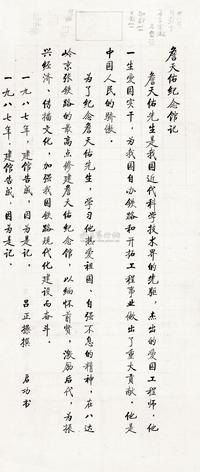 詹天佑纪念馆记
詹天佑先生是我国近代科学技术界的先驱,杰出的爱国工程师。他
一生爱国实干,为我国自办铁路和开拓工程事业做出了重大贡献。他是
中国人民的骄傲。
为了纪念詹天佑先生,学习他热爱祖国、自强不息的精神,在八达
岭京张铁路的最高点修建詹天佑纪念馆,以缅怀前贤,激励后代,为振
兴经济、传播文化,加强我国铁路现代化建设而奋斗。
一九八七年,建馆告成,因为是记。 吕正操撰 启功书
一九八七年,建馆告成,因为是记。